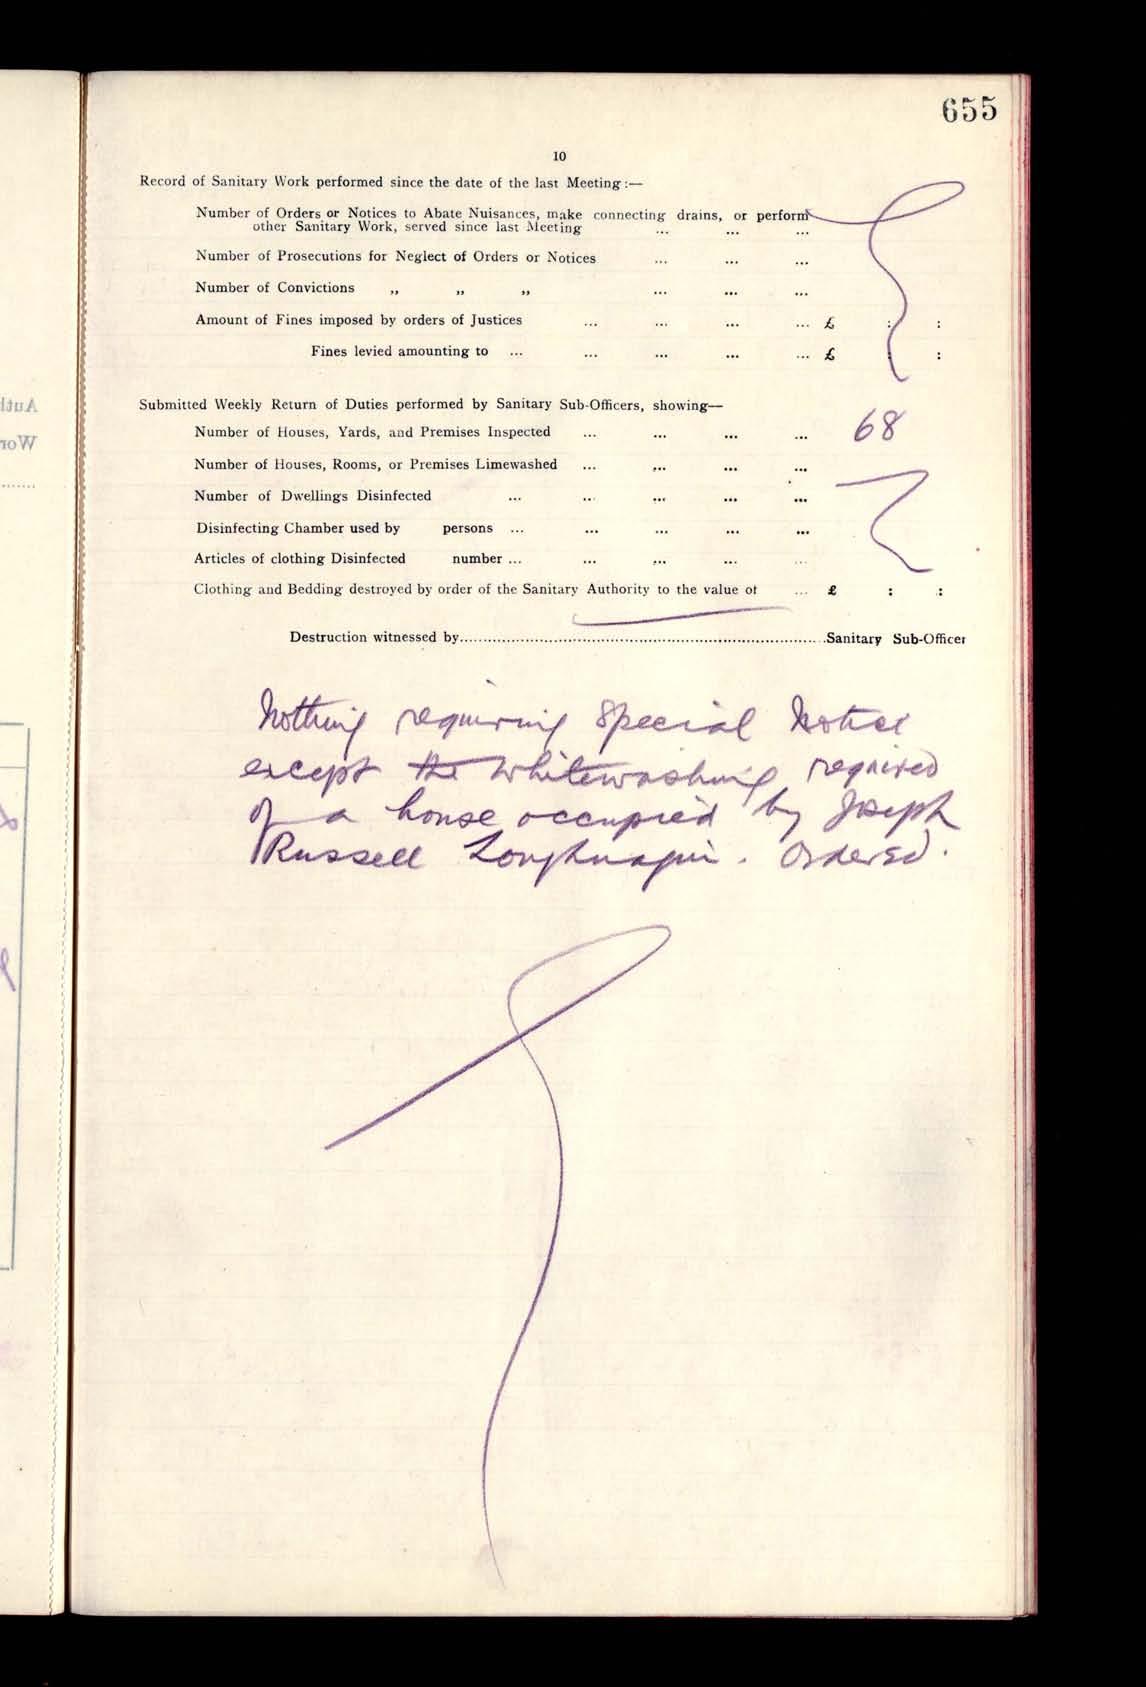 655
10
Record of Sanitary Work performed since the date of the last Meeting :—
Number of Orders or Notices to Abate Nuisances, make connecting drains, or perform
other Sanitary Work, served since last Meeting ... ... ...
Number of Prosecutions for Neglect of Orders or Notices ... ... ...
Number of Convictions ,, ,, ,, ... ... ...
Amount of Fines imposed by orders of Justices ... ... ... ... £ : :
Fines levied amounting to ... ... ... ... ... £ : :
Submitted Weekly Return of Duties performed by Sanitary Sub-Officers, showing—
Number of Houses, Yards, and Premises Inspected ... ... ... ... 68
Number of Houses, Rooms, or Premises Limewashed ... ... ... ...
Number of Dwellings Disinfected ... ... ... ... ...
Disinfecting Chamber used by persons ... ... ... ... ...
Articles of clothing Disinfected number ... ... ... ... ...
Clothing and Bedding destroyed by order of the Sanitary Authority to the value of ... £ : :
Destruction witnessed by..............................Sanitary Sub-Officer
Nothing requiring Special Notice
except the Whitewashing required
of a house occupied by Joseph
Russell Loughmaguin. Ordered.
Auth
Wor